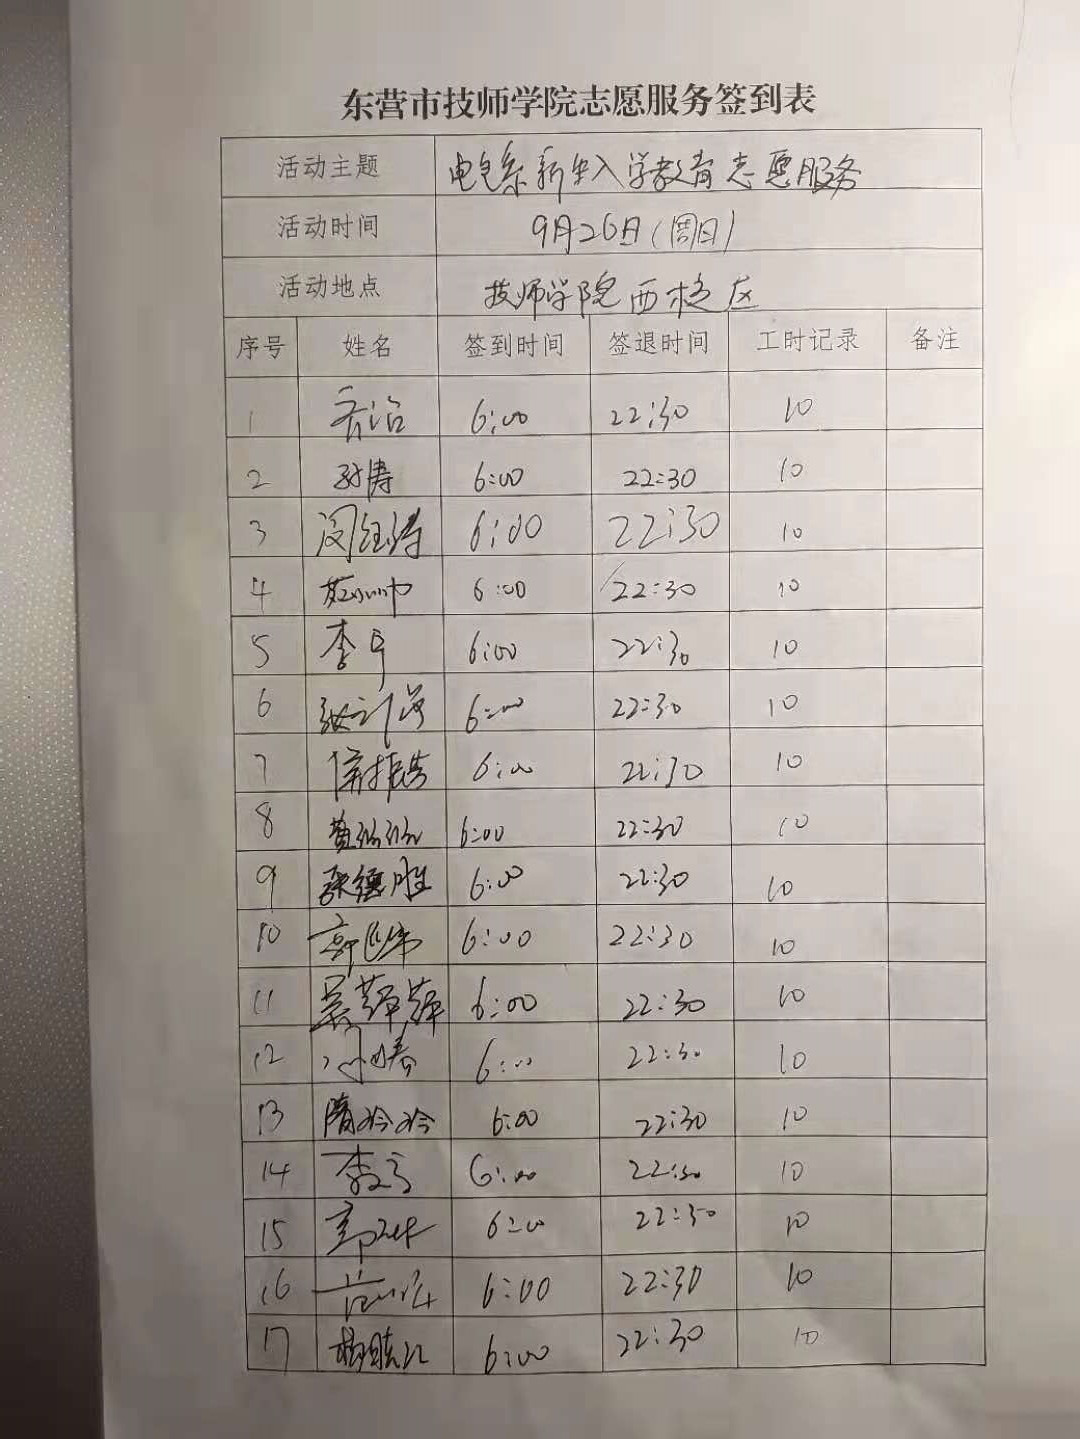 东营市技师学院志愿服务签到表
活动主题 电气系新生入学教育志愿服务
活动时间 9月26日(周日)
活动地点 技师学院西校区
序号 姓名 签到时间 签退时间 工时记录 备注
1 6:00 22:30 10
2 孙涛 6:00 22:30 10
3 6:00 22:30 10
4 6:00 22:30 10
5 李 6:00 22:30 10
6 6:00 22:30 10
7 6:00 22:30 10
8 6:00 22:30 10
9 张德胜 6:00 22:30 10
10 6:00 22:30 10
11 6:00 22:30 10
12 6:00 22:30 10
13 隋玲玲 6:00 22:30 10
14 李 6:00 22:30 10
15 6:00 22:30 10
16 6:00 22:30 10
17 6:00 22:30 10